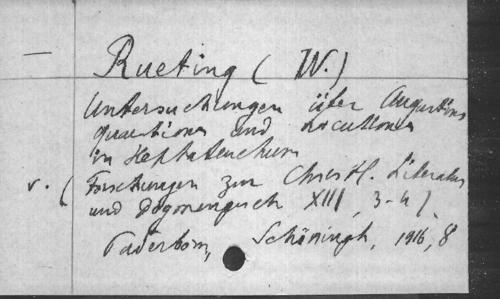 — Rueting (W.)
Untersuchungen über Augustins
Quaestiones und Locutiones
in Heptateuchum
v. (Forschungen zur Christl. Literatur
und Dogmengesch XIII, 3-4).
Paderborn, Schöningh, 1916, 8°